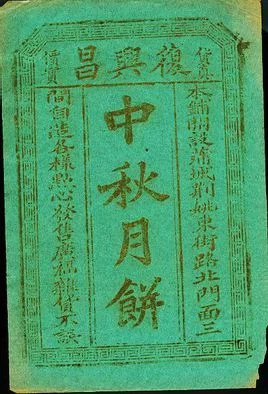 貨真
復興昌
價實
本鋪開設蒲城荊姚東街路北門面三
中秋月餅
間自造各樣點心發售廣福雜貨不誤